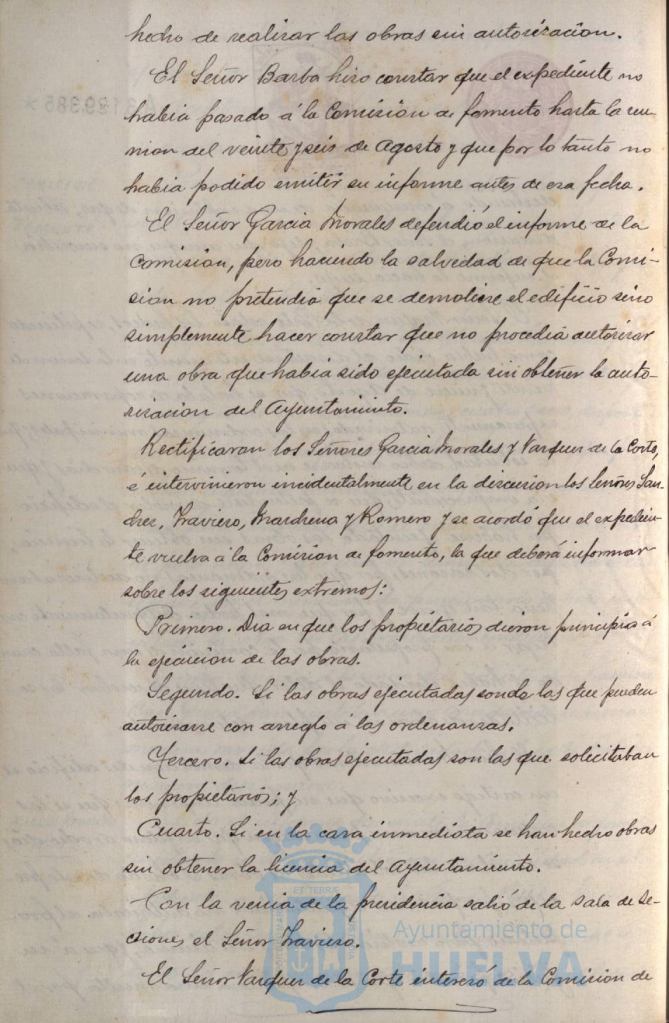 hecho de realizar las obras sin autorizacion.
El Señor Barba hizo constar que el expediente no
habia pasado á la Comision de fomento hasta la reu-
nion del veinte y seis de Agosto y que por lo tanto no
habia podido emitir su informe antes de esa fecha.
El Señor Garcia Morales defendió el informe de la
Comision, pero haciendo la salvedad de que la Comi-
sion no pretendia que se demoliese el edificio sino
simplemente hacer constar que no procedia autorizar
una obra que habia sido ejecutada sin obtener la auto-
rizacion del Ayuntamiento.
Rectificaron los Señores Garcia Morales y Vazquez de la Corte,
é intervinieron incidentalmente en la discusion los Señores San-
chez, Traviero, Marchena y Romero y se acordó que el expedien-
te vuelva á la Comision de fomento, la que deberá informar
sobre los siguientes extremos:
Primero. Dia en que los propietarios dieron principio á
la ejecucion de las obras.
Segundo. Si las obras ejecutadas son de las que pueden
autorizarse con arreglo á las ordenanzas.
Tercero. Si las obras ejecutadas son las que solicitaban
los propietarios; y
Cuarto. Si en la casa inmediata se han hecho obras
sin obtener la licencia del Ayuntamiento.
Con la venia de la presidencia salió de la sala de se-
siones el Señor Traviero.
El Señor Vazquez de la Corte interesó de la Comision de
Ayuntamiento de
HUELVA